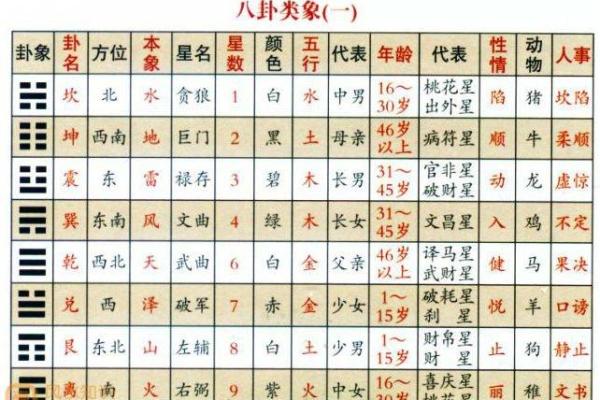 八卦类象(一)
卦象 卦名 方位 本象 星名 星数 颜色 五行 代表 年龄 代表 性情 动物 人事
坎 北 水 贪狼 1 白 水 中男 16～30岁 桃花星 出外星 陷 猪 坎陷
坤 西南 地 巨门 2 黑 土 母亲 46岁以上 病符星 顺 牛 柔顺
震 东 雷 禄存 3 碧 木 长男 31～45岁 官非星 破财星 动 龙 虚惊
巽 东南 风 文曲 4 绿 木 长女 31～45岁 文昌星 入 鸡 不定
乾 西北 天 武曲 6 白 金 父亲 46岁以上 译马星 武财星 健 马 果决
兑 西 泽 破军 7 赤 金 少女 1～15岁 破耗星 刹星 悦 羊 口谤
艮 东北 山 左辅 8 白 土 少男 1～15岁 财帛星 财星 止 狗 静止
离 南 火 右弼 9 紫 火 中女 16～30岁 喜庆星 桃花星 丽 稚 文书